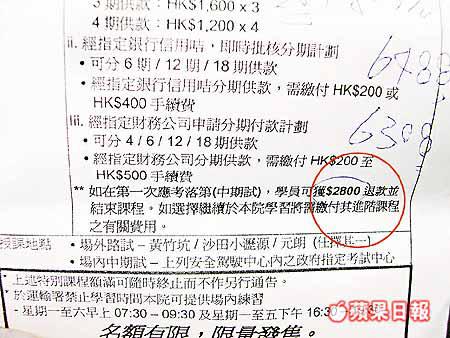 3 期供款：HK$1,600 x 3
4 期供款：HK$1,200 x 4
ii. 經指定銀行信用咭，即時批核分期計劃
• 可分 6 期 / 12 期 / 18 期供款
• 經指定銀行信用咭分期供款，需繳付 HK$200 或
HK$400 手續費
6788
iii. 經指定財務公司申請分期付款計劃
• 可分 4 / 6 / 12 / 18 期供款
• 經指定財務公司分期供款，需繳付 HK$200 至
HK$500 手續費
6308
** 如在第一次應考落第(中期試)，學員可獲$2800 退款並
結束課程。如選擇繼續於本院學習將需繳付其進階課程
之有關費用。
授課地點
• 場外路試 – 黃竹坑 / 沙田小瀝源 / 元朗 (任擇其一)
• 場內中期試 – 上列安全駕駛中心內之政府指定考試中心
* 上述特別課程額滿可隨時終止而不作另行通告。
* 於運輸署禁止學習時間本院可提供場內練習
- 星期一至六早上 07:30 – 09:30 及星期一至五下午 16:30
名額有限，限量發售。
蘋果日報